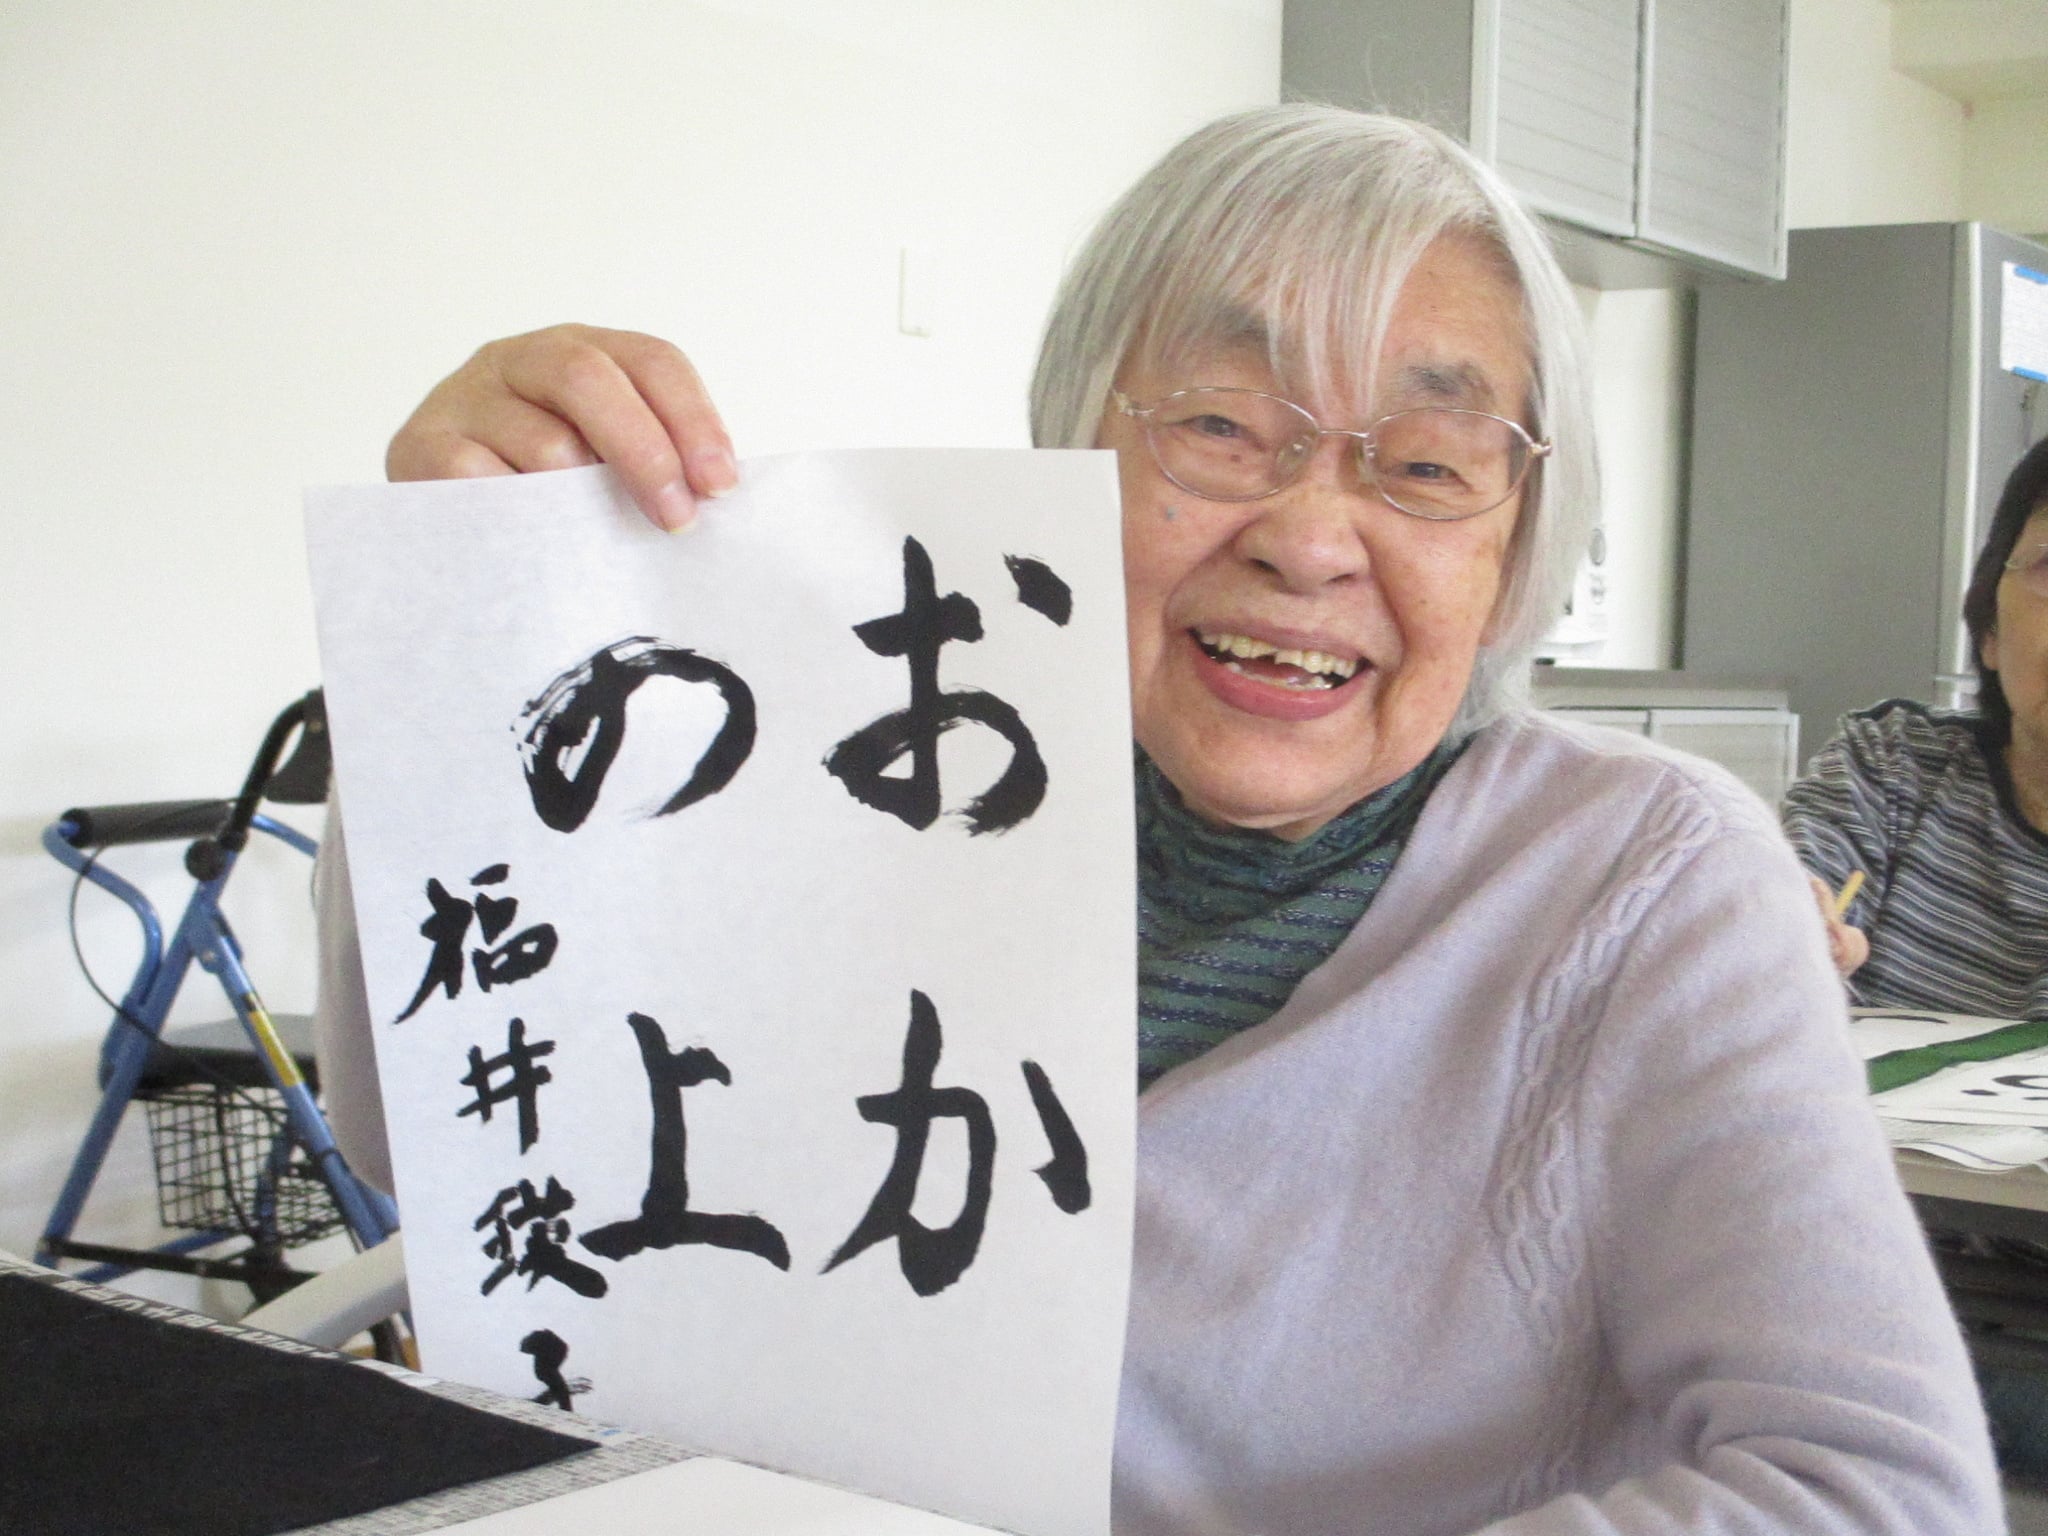 おか
の上
福井鍈子